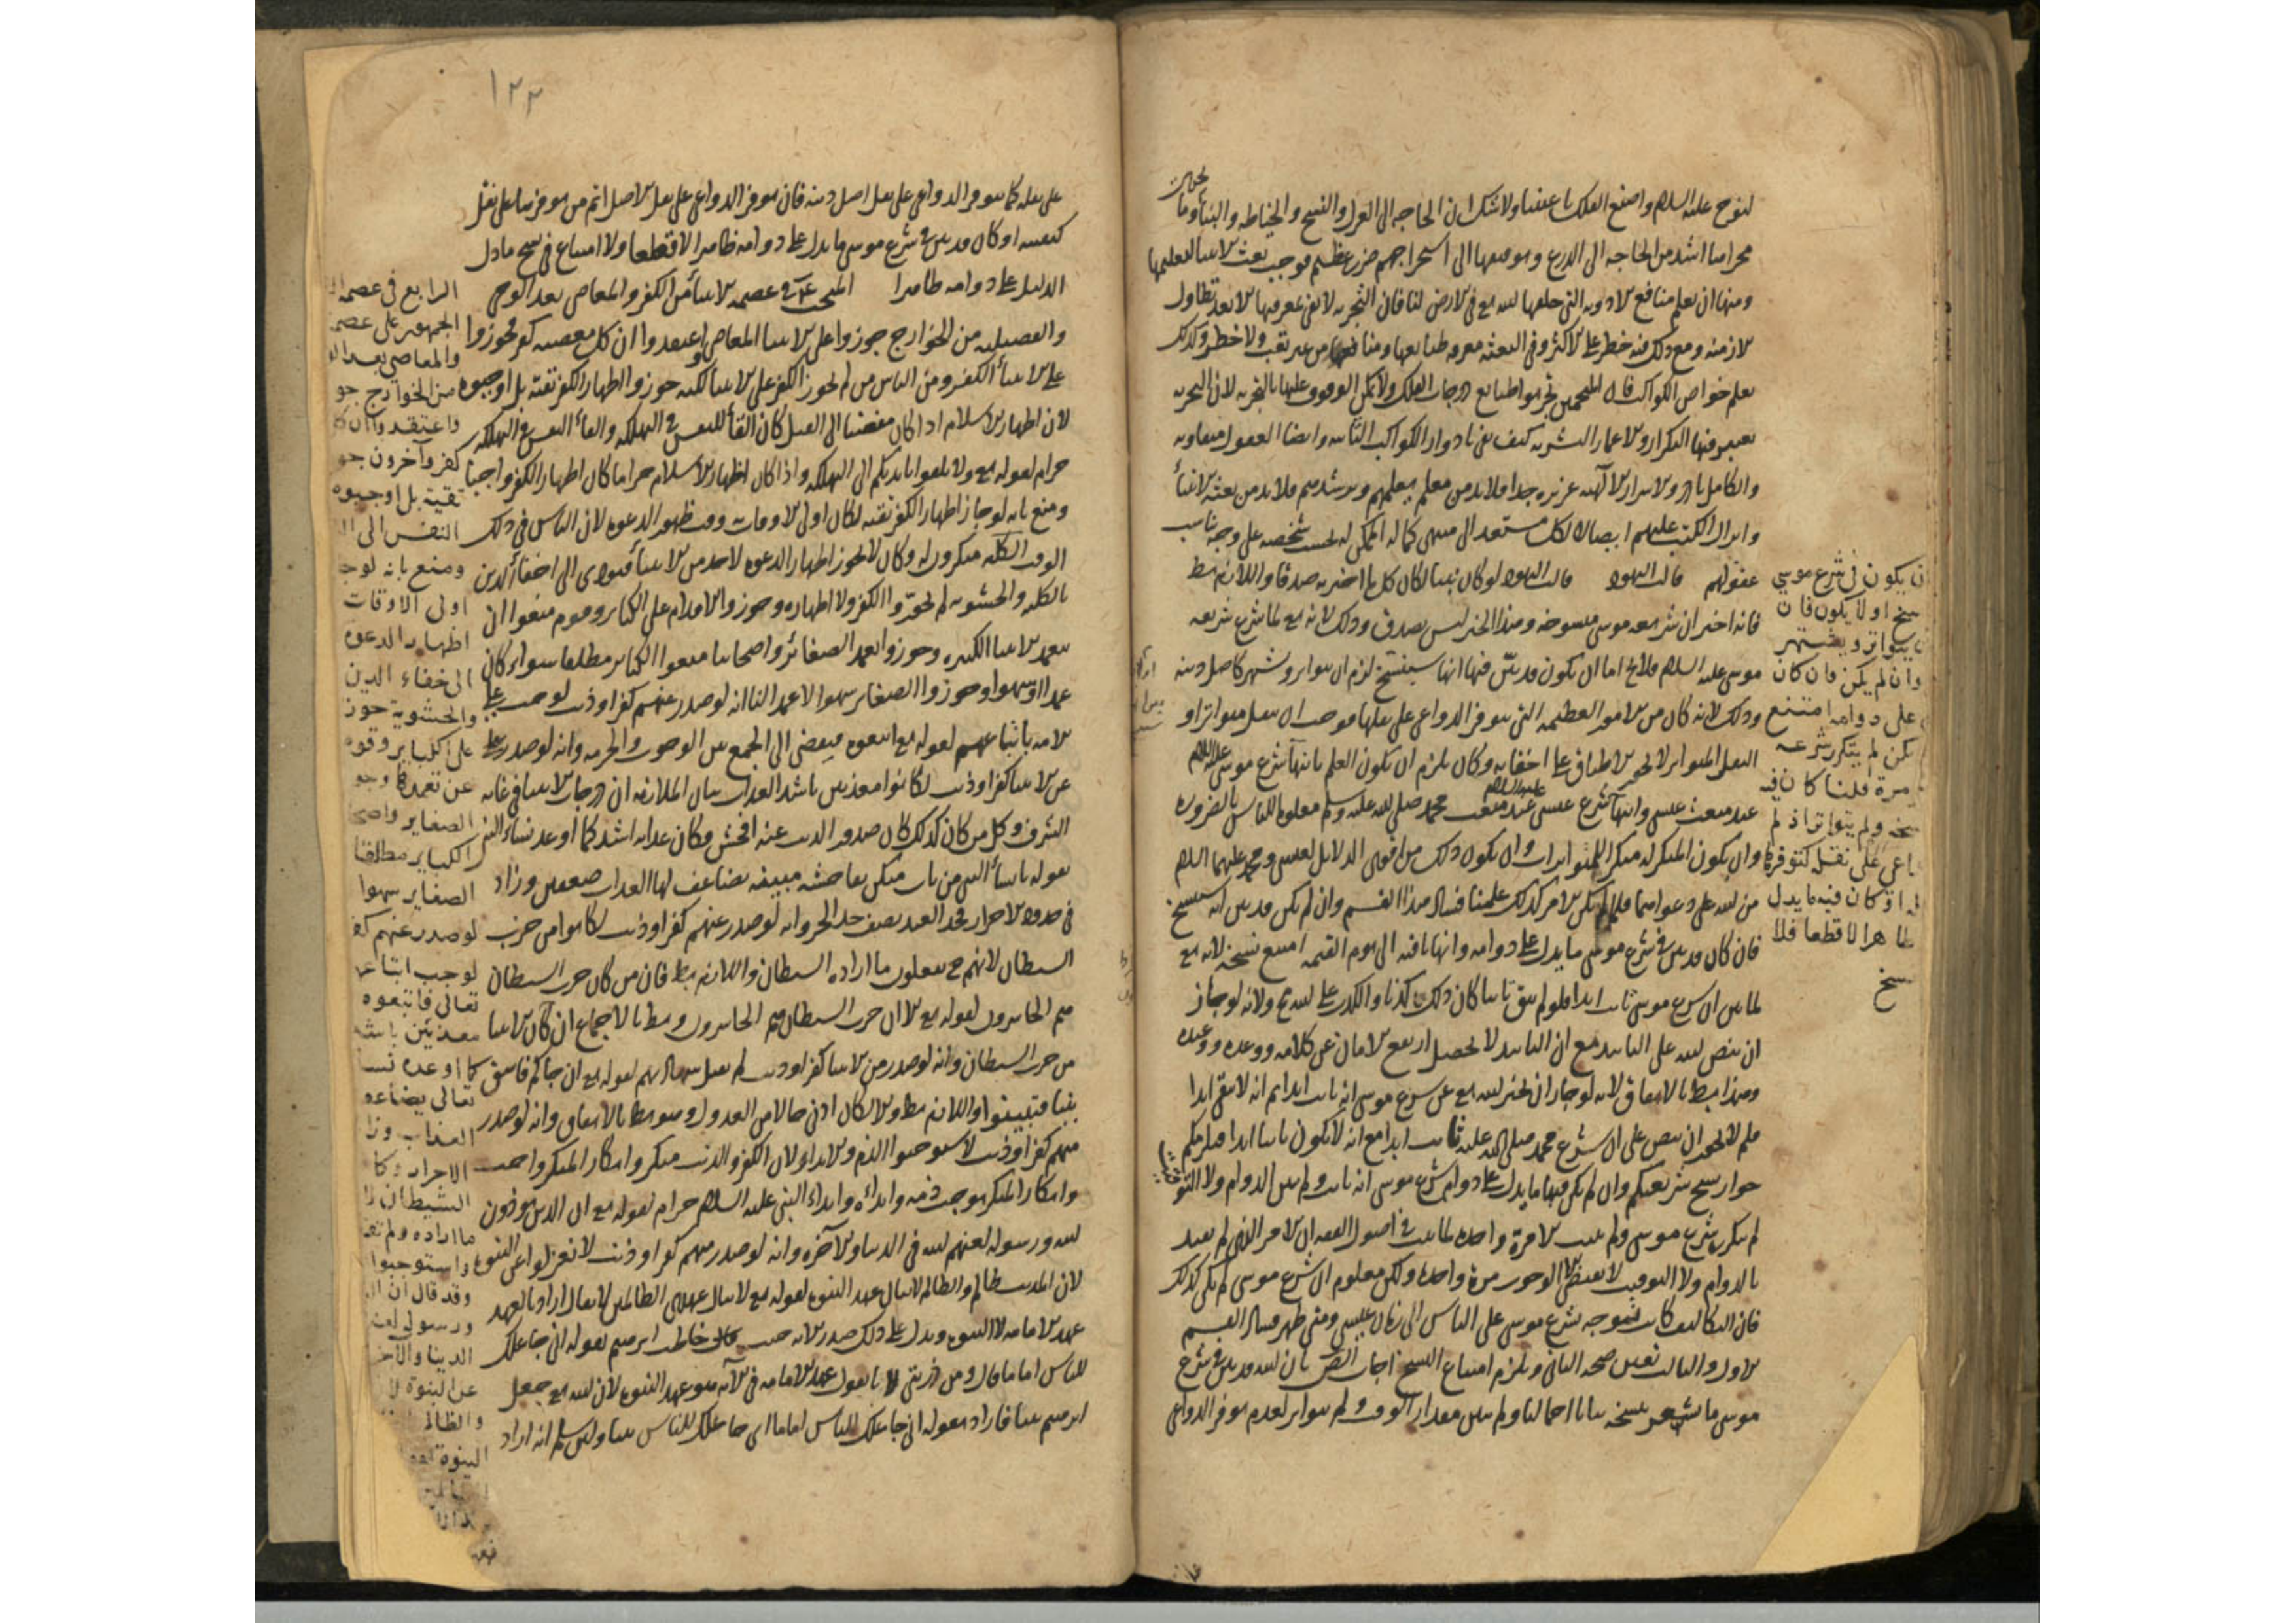 لنوح عليه السلام واصنع الفلك باعيننا ولا شك ان الحاجة الى الغزل والنسج والخياطة والبناء وما
يجرى مجراها اشد من الحاجة الى الدرع
ومنها ان يعلم منافع الادوية التي خلقها الله تع في الارض لنا فان التجربة لا تفي بمعرفتها الا بعد تطاول
الازمنة ومع ذلك فيه خطر على الاكثر وفي البعثة معرفة طبائعها ومنافعها من غير تعب ولا خطر وكذلك
يعلم خواص الكواكب فان المنجمين عرفوا طبائع درجات الفلك ولا يمكن الوقوف عليها بالتجربة لان التجربة
يعتبر فيها التكرار والاعمار البشرية كيف تفي بادوار الكواكب الثابتة وايضا العقول متفاوتة
والكامل نادر والاسرار الالهية عزيزة جدا فلا بد من معلم يعلمهم ويرشدهم فلا بد من بعثة الانبياء
وانزال الكتب عليهم ايصالا لكل مستعد الى منتهى كماله الممكن له بحسب شخصه على وجه يناسب
عقولهم قالت اليهود قالت اليهود لو كان نبيا لكان كل ما اخبر به صدقا واللازم بط
فانه اخبر ان شريعة موسى منسوخة وهذا الخبر ليس بصدق وذلك لانه تع لما شرع شريعة
موسى عليه السلام فلا يخ اما ان يكون قد بين فيها انها ستنسخ لزم ان يتواتر ويشتهر كاصل دينه
وذلك لانه كان من الامور العظيمة التي يتوفر الدواعي على نقلها فوجب ان ينقل متواترا و
النقل المتواتر لا يجوز الاطباق على اخفائه وكان يلزم ان يكون العلم بانتهاء شرع موسى عليه السلام
عند مبعث عيسى وانتهاء شرع عيسى عليه السلام عند مبعث محمد صلى الله عليه وسلم معلوما للناس بالضرورة
وان يكون المنكر له منكرا للمتواترات وان يكون ذلك من اقوى الدلائل لعيسى ومحمد عليهما السلام
من الله على دعواهما فلما لم يكن الامر كذلك علمنا فساد هذا القسم وان لم يكن قد بين انه سينسخ
فان كان قد بين في شرع موسى ما يدل على دوامه وانها باقية الى يوم القيمة امتنع نسخه لانه تع
لما بين ان شرع موسى ثابت ابدا فلو لم يبق ثابتا كان ذلك كذبا والكذب على الله تع ولانه لو جاز
ان ينص الله على التابيد مع ان التابيد لا يحصل ارتفع الامان عن كلامه ووعده ووعيده
وهذا بط بالاتفاق لانه لو جاز ان يخبر الله تع عن شرع موسى انه ثابت ابدا ثم انه لا يبقى ابدا
فلم لا يجوز ان ينص على ان شرع محمد صلى الله عليه ثابت ابدا مع انه لا يكون ثابتا ابدا فيلزمكم
جواز نسخ شريعتكم وان لم يكن فيها ما يدل على دوام شرع موسى انه ثابت ولم يبين الدوام ولا التوقيت
لم يتكرر شرع موسى ولم يثبت الا مرة واحدة لما ثبت في اصول الفقه ان الامر الذي لم يقيد
بالدوام ولا التوقيت لا يقتضي الا الوجوب مرة واحدة ولكن معلوم ان شرع موسى لم يكن كذلك
فان التكاليف كانت متوجه بشرع موسى على الناس الى زمان عيسى ومتى ظهر فساد القسم
الاول والثالث تعين صحة الثاني ويلزم امتناع النسخ اجاب المص بان الله قد بين في شرع
موسى ما يشعر بنسخه بيانا اجماليا ولم يبين مقدار الوقت ولم يتواتر لعدم توفر الدواعي
ان يكون في شرع موسى
ينسخ او لا يكون فان
ان يتواتر ويشتهر
وان لم يكن فان كان
على دوامه امتنع
يكن لم يتكرر شرعه
مرة قلنا كان فيه
بنسخه ولم يتواتر اذ لم
الدواعي على نقله كتوفرها
او كان فيه ما يدل
ظاهرا لا قطعا فلا
نسخ
١٢٢
على نقله كما يتوفر الدواعي على نقل اصل دينه فان توفر الدواعي على نقل الاصل اتم من توفرها على نقل
كيفيته او كان قد بين في شرع موسى ما يدل على دوامه ظاهرا لا قطعا ولا امتناع في نسخ ما دل
الدليل على دوامه ظاهرا المبحث في عصمة الانبياء من الكفر والمعاصي بعد الوحي
والفضيلية من الخوارج جوزوا على الانبياء المعاصي واعتقدوا ان كل معصية كفر فجوزوا
على الانبياء الكفر ومن الناس من لم يجوز الكفر على الانبياء لكنه جوزوا اظهار الكفر تقية بل اوجبوه
لان اظهار الاسلام اذا كان مفضيا الى القتل كان القاء للنفس في التهلكة والقاء النفس في التهلكة
حرام لقوله تع ولا تلقوا بايديكم الى التهلكة واذا كان اظهار الاسلام حراما كان اظهار الكفر واجبا
ومنع بانه لو جاز اظهار الكفر تقية لكان اولى الاوقات وقت ظهور الدعوة لان الناس في ذلك
الوقت بالكلية منكرون له وكان لا يجوز اظهار الدعوة لاحد من الانبياء فيؤدي الى اخفاء الدين
بالكلية والحشوية لم يجوزوا الكفر ولا اظهاره وجوزوا الاقدام على الكبائر وقوم منعوا ان
يتعمد الانبياء الكبيرة وجوزوا تعمد الصغائر واصحابنا منعوا الكبائر مطلقا سواء كان
عمدا او سهوا وجوزوا الصغائر سهوا لا عمدا لنا انه لو صدر عنهم كفر او ذنب لوجب على
الامة باتباعهم لقوله تع اتبعوه فيفضي الى الجمع بين الوجوب والحرمة وانه لو صدر
عن الانبياء كفر او ذنب لكانوا معذبين باشد العذاب بيان الملازمة ان درجات الانبياء في غاية
الشرف وكل من كان كذلك كان صدور الذنب عنه افحش وكان عذابه اشد كما اوعد نساء النبي
بقوله يا نساء النبي من يات منكن بفاحشة مبينة يضاعف لها العذاب ضعفين وزاد
في حدود الاحرار فحد العبد نصف حد الحر وانه لو صدر عنهم كفر او ذنب لكانوا من حزب
الشيطان لانهم ح يفعلون ما اراده الشيطان واللازم بط فان من كان حزب الشيطان
هم الخاسرون لقوله تع الا ان حزب الشيطان هم الخاسرون وبط بالاجماع ان كان الانبياء
من حزب الشيطان وانه لو صدر من الانبياء كفر او ذنب لم يقبل شهادتهم لقوله تع ان جاءكم فاسق
بنبا فتبينوا واللازم بط والا لكان ادنى حالا من العدول وهو بط بالاتفاق وانه لو صدر
منهم كفر او ذنب لاستوجبوا الذم والايذاء لان الكفر والذنب منكر وانكار المنكر واجب
وانكار المنكر يوجب ذمه وايذاءه وايذاء النبي عليه السلام حرام لقوله تع ان الذين يؤذون
الله ورسوله لعنهم الله في الدنيا والآخرة وانه لو صدر منهم كفر او ذنب لانعزلوا عن النبوة
لان المذنب ظالم والظالم لا ينال عهد النبوة لقوله تع لا ينال عهدي الظالمين لا يقال اراد بالعهد
عهد الامامة لا النبوة ويدل على ذلك صدر الآية حيث قال خاطب ابرهيم لقوله اني جاعلك
للناس اماما قال ومن ذريتي لانا نقول عهد الامامة في الآية هو عهد النبوة لان الله تع جعل
ابرهيم نبيا فاراد بقوله اني جاعلك للناس اماما اي جاعلك للناس نبيا ولئن سلم انه اراد
الرابع في عصمة
الجمهور على عصمة
والمعاصي بعد
من الخوارج
واعتقدوا ان
كفر وآخرون
تقية بل اوجبوه
النفس الى
ومنع بانه لو
اولى الاوقات
اظهار الدعوة
الى خفاء الدين
والحشوية جوز
على الكبائر وقوم
عن تعمدها
الصغاير واصحا
الكباير مطلقا
الصغاير سهوا
لو صدر عنهم كفر
لوجب اتباعهم
تعالى فاتبعوه
معذبين باشد
كما اوعده نسا
تعالى يضاعف
العذاب وزا
الاحرار وكا
الشيطان
ما اراده ولم
واستوجبوا
وقد قال ان
ورسوله لعنهم
الدنيا والآخرة
عن النبوة
والظالم
النبوة